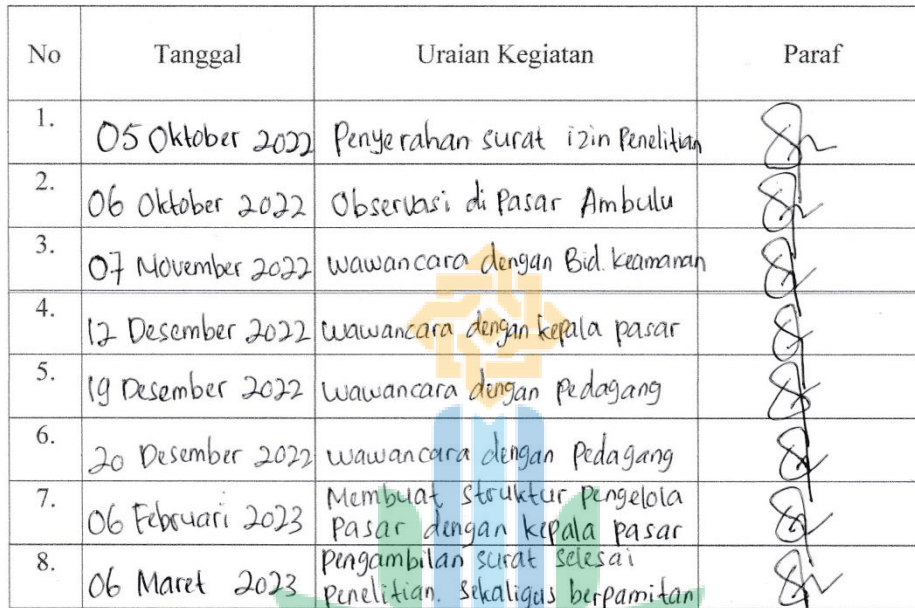 No Tanggal Uraian Kegiatan Paraf
1. 05 Oktober 2022 Penyerahan surat izin Penelitian
2. 06 Oktober 2022 Observasi di Pasar Ambulu
3. 07 November 2022 wawancara dengan Bid. Keamanan
4. 12 Desember 2022 wawancara dengan kepala pasar
5. 19 Desember 2022 wawancara dengan Pedagang
6. 20 Desember 2022 wawancara dengan Pedagang
7. 06 Februari 2023 Membuat struktur pengelola
Pasar dengan kepala pasar
8. 06 Maret 2023 pengambilan surat selesai
penelitian. sekaligus berpamitan